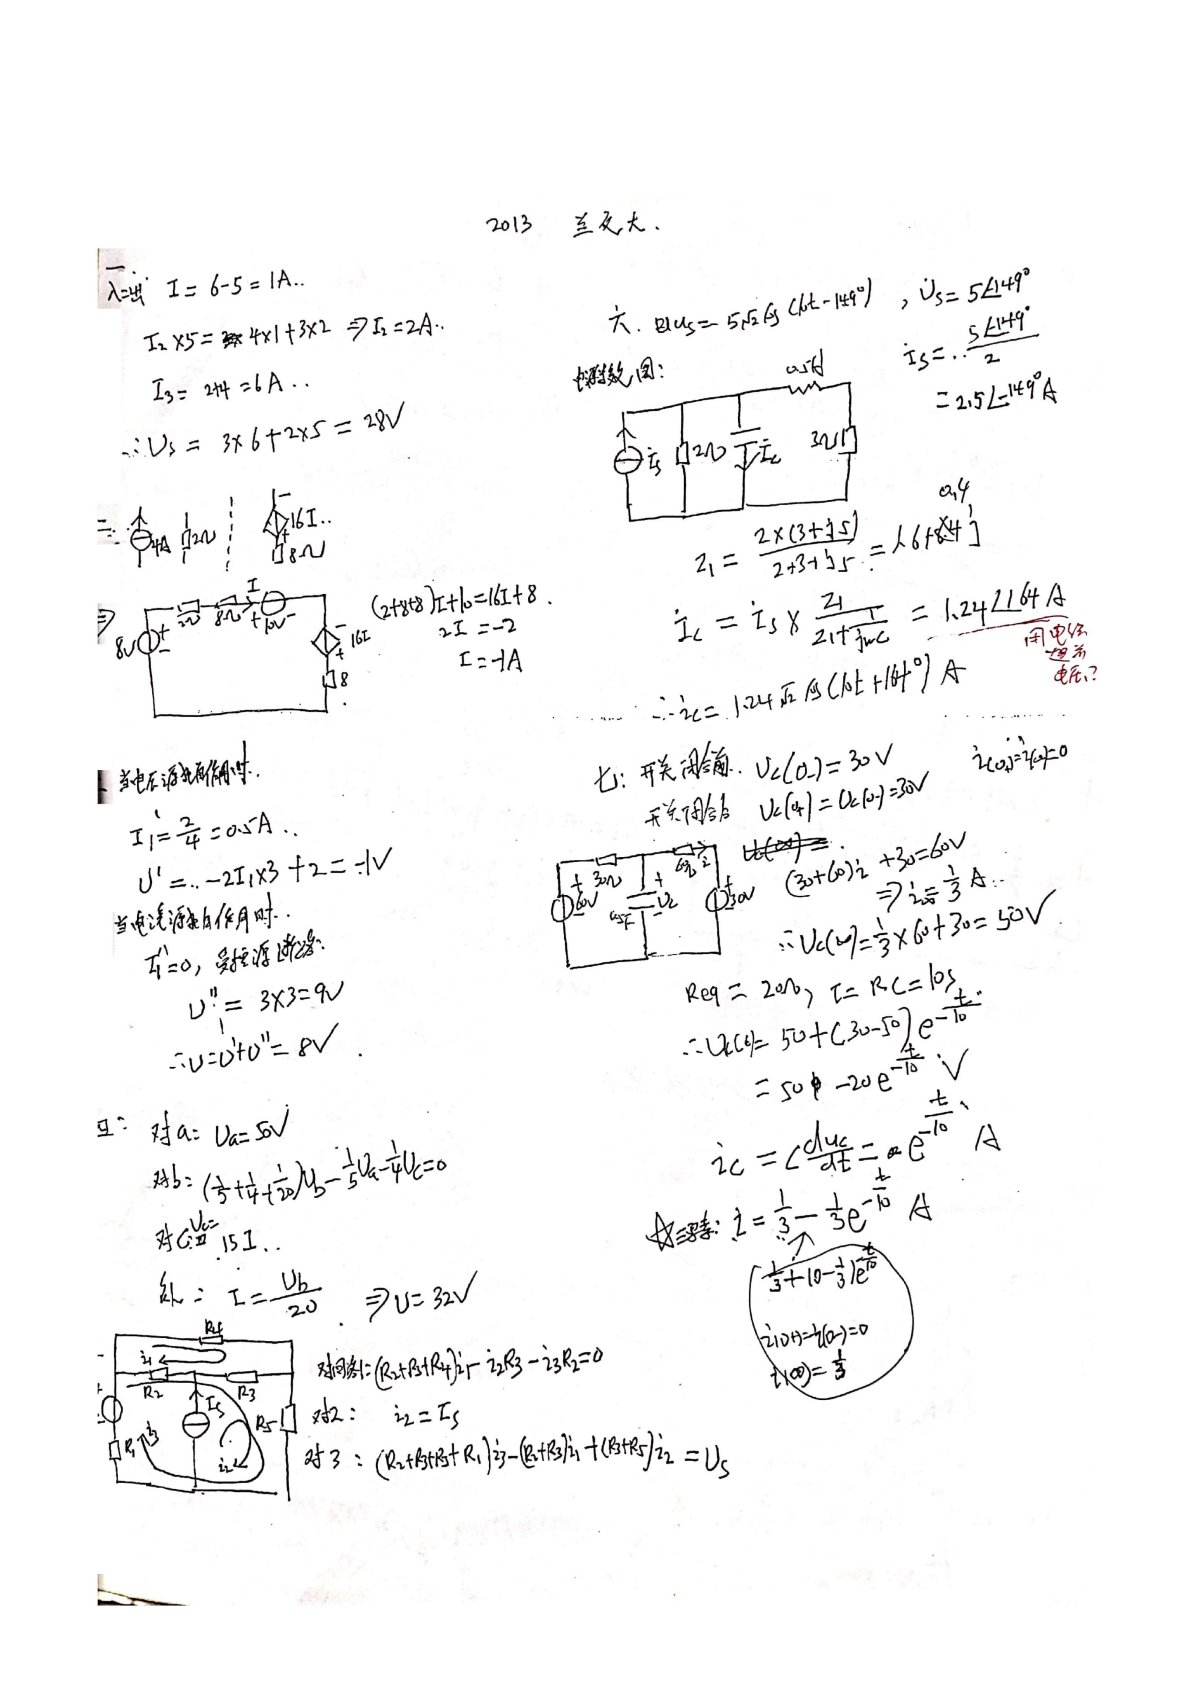 2013 兰交大.
一. 入=出 I = 6-5 = 1A..
I₂×5 = 4×1+3×2 ⇒ I₂=2A..
I₃= 2+4 =6A..
∴Us = 3×6+2×5 = 28V
二:
4A 2Ω 16I.. 8Ω
⇒ 8V 2Ω 8Ω I 10V 16I 8
(2+8+8)I+10=16I+8.
2I =-2
I =-1A
当电压源单独作用时..
I₁' = 2/4 =0.5A..
U' = ..-2I₁×3 +2 = -1V
当电流源单独作用时..
I₁''=0, 受控源断路.
U'' = 3×3=9V
∴U=U'+U''= 8V.
四: 对a: Ua=50V
对b: (1/5+1/4+1/20)Ub-1/5Ua-1/4Uc=0
对C: Uc= 15I..
I = Ub/20 ⇒U=32V
R4 i₁ R2 R3 Is R5 R1 i3 i2
(R2+R3+R4)i₁-i₂R3-i₃R2=0
对2: i₂=Is
对3: (R2+R3+R5+R1)i3-(R2+R3)i₁+(R3+R5)i₂ =Us
六. us= 5√2 cos(10t-149°), U̇s = 5∠-149°
İs=.. 5∠-149°/2
=2.5∠-149°A
电源等效图:
0.5H İs 2Ω İc 3Ω
Z₁ = 2×(3+j5)/2+3+j5 = 1.6+0.4j
İc = İs × Z₁/Z₁+1/jωC = 1.24∠164 A
用电流
超前
电压?
∴ic= 1.24√2 cos(10t+164°) A
七: 开关闭合前.. Uc(0-)=30V i(0+)=i(0-)=0
开关闭合后 Uc(0+)=Uc(0-)=30V
60V 30Ω 60Ω i Uc 30V
(30+60)i +30=60V
⇒ i= 1/3 A..
∴Uc(∞)=1/3×60+30=50V
Req = 20Ω, τ= RC=10s
∴Uc(t)= 50+(30-50)e^-t/10
= 50 -20e^-t/10 V
ic = C duc/dt = e^-t/10 A
三要素: i = 1/3 - 1/3e^-t/10 A
1/3+(0-1/3)e^-t/10
i(0+)=i(0-)=0
i(∞)= 1/3